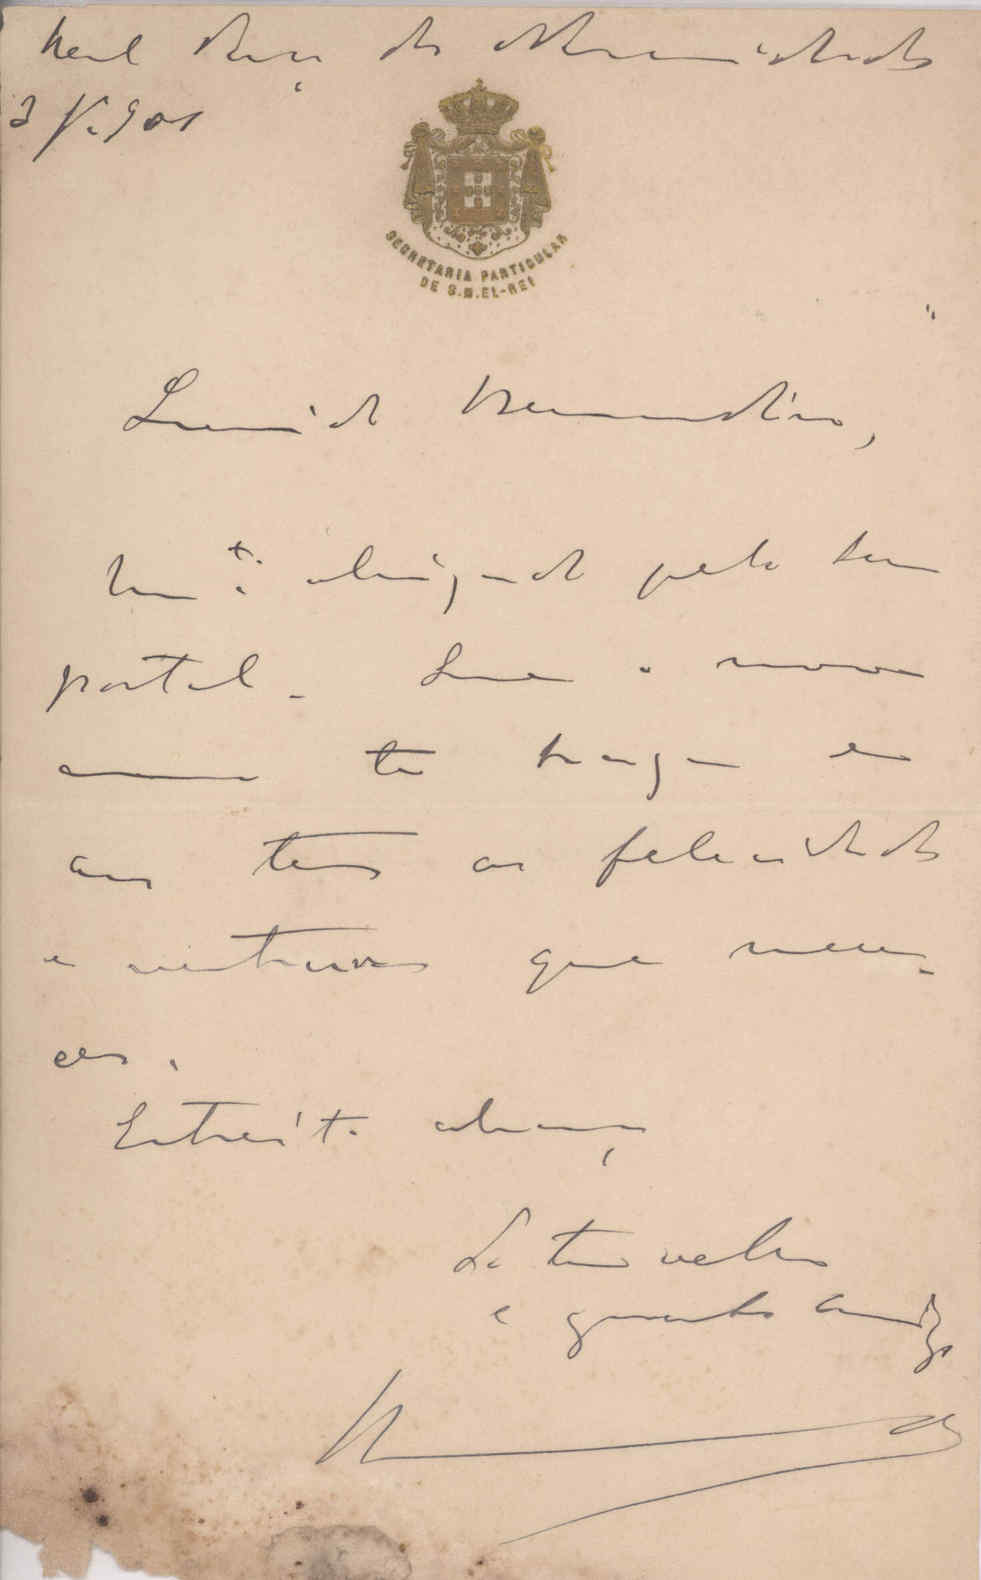 Real Paço das Necessidades
3 Jº 901
SECRETARIA PARTICULAR
DE S.M.EL-REI
Querido Bernardino,
Mto obrigado pelo teu
postal. Que o novo
anno te traga e
aos teus as felicidades
e venturas que mere-
ces.
Estreito abraço
Do teu velho
e amigo